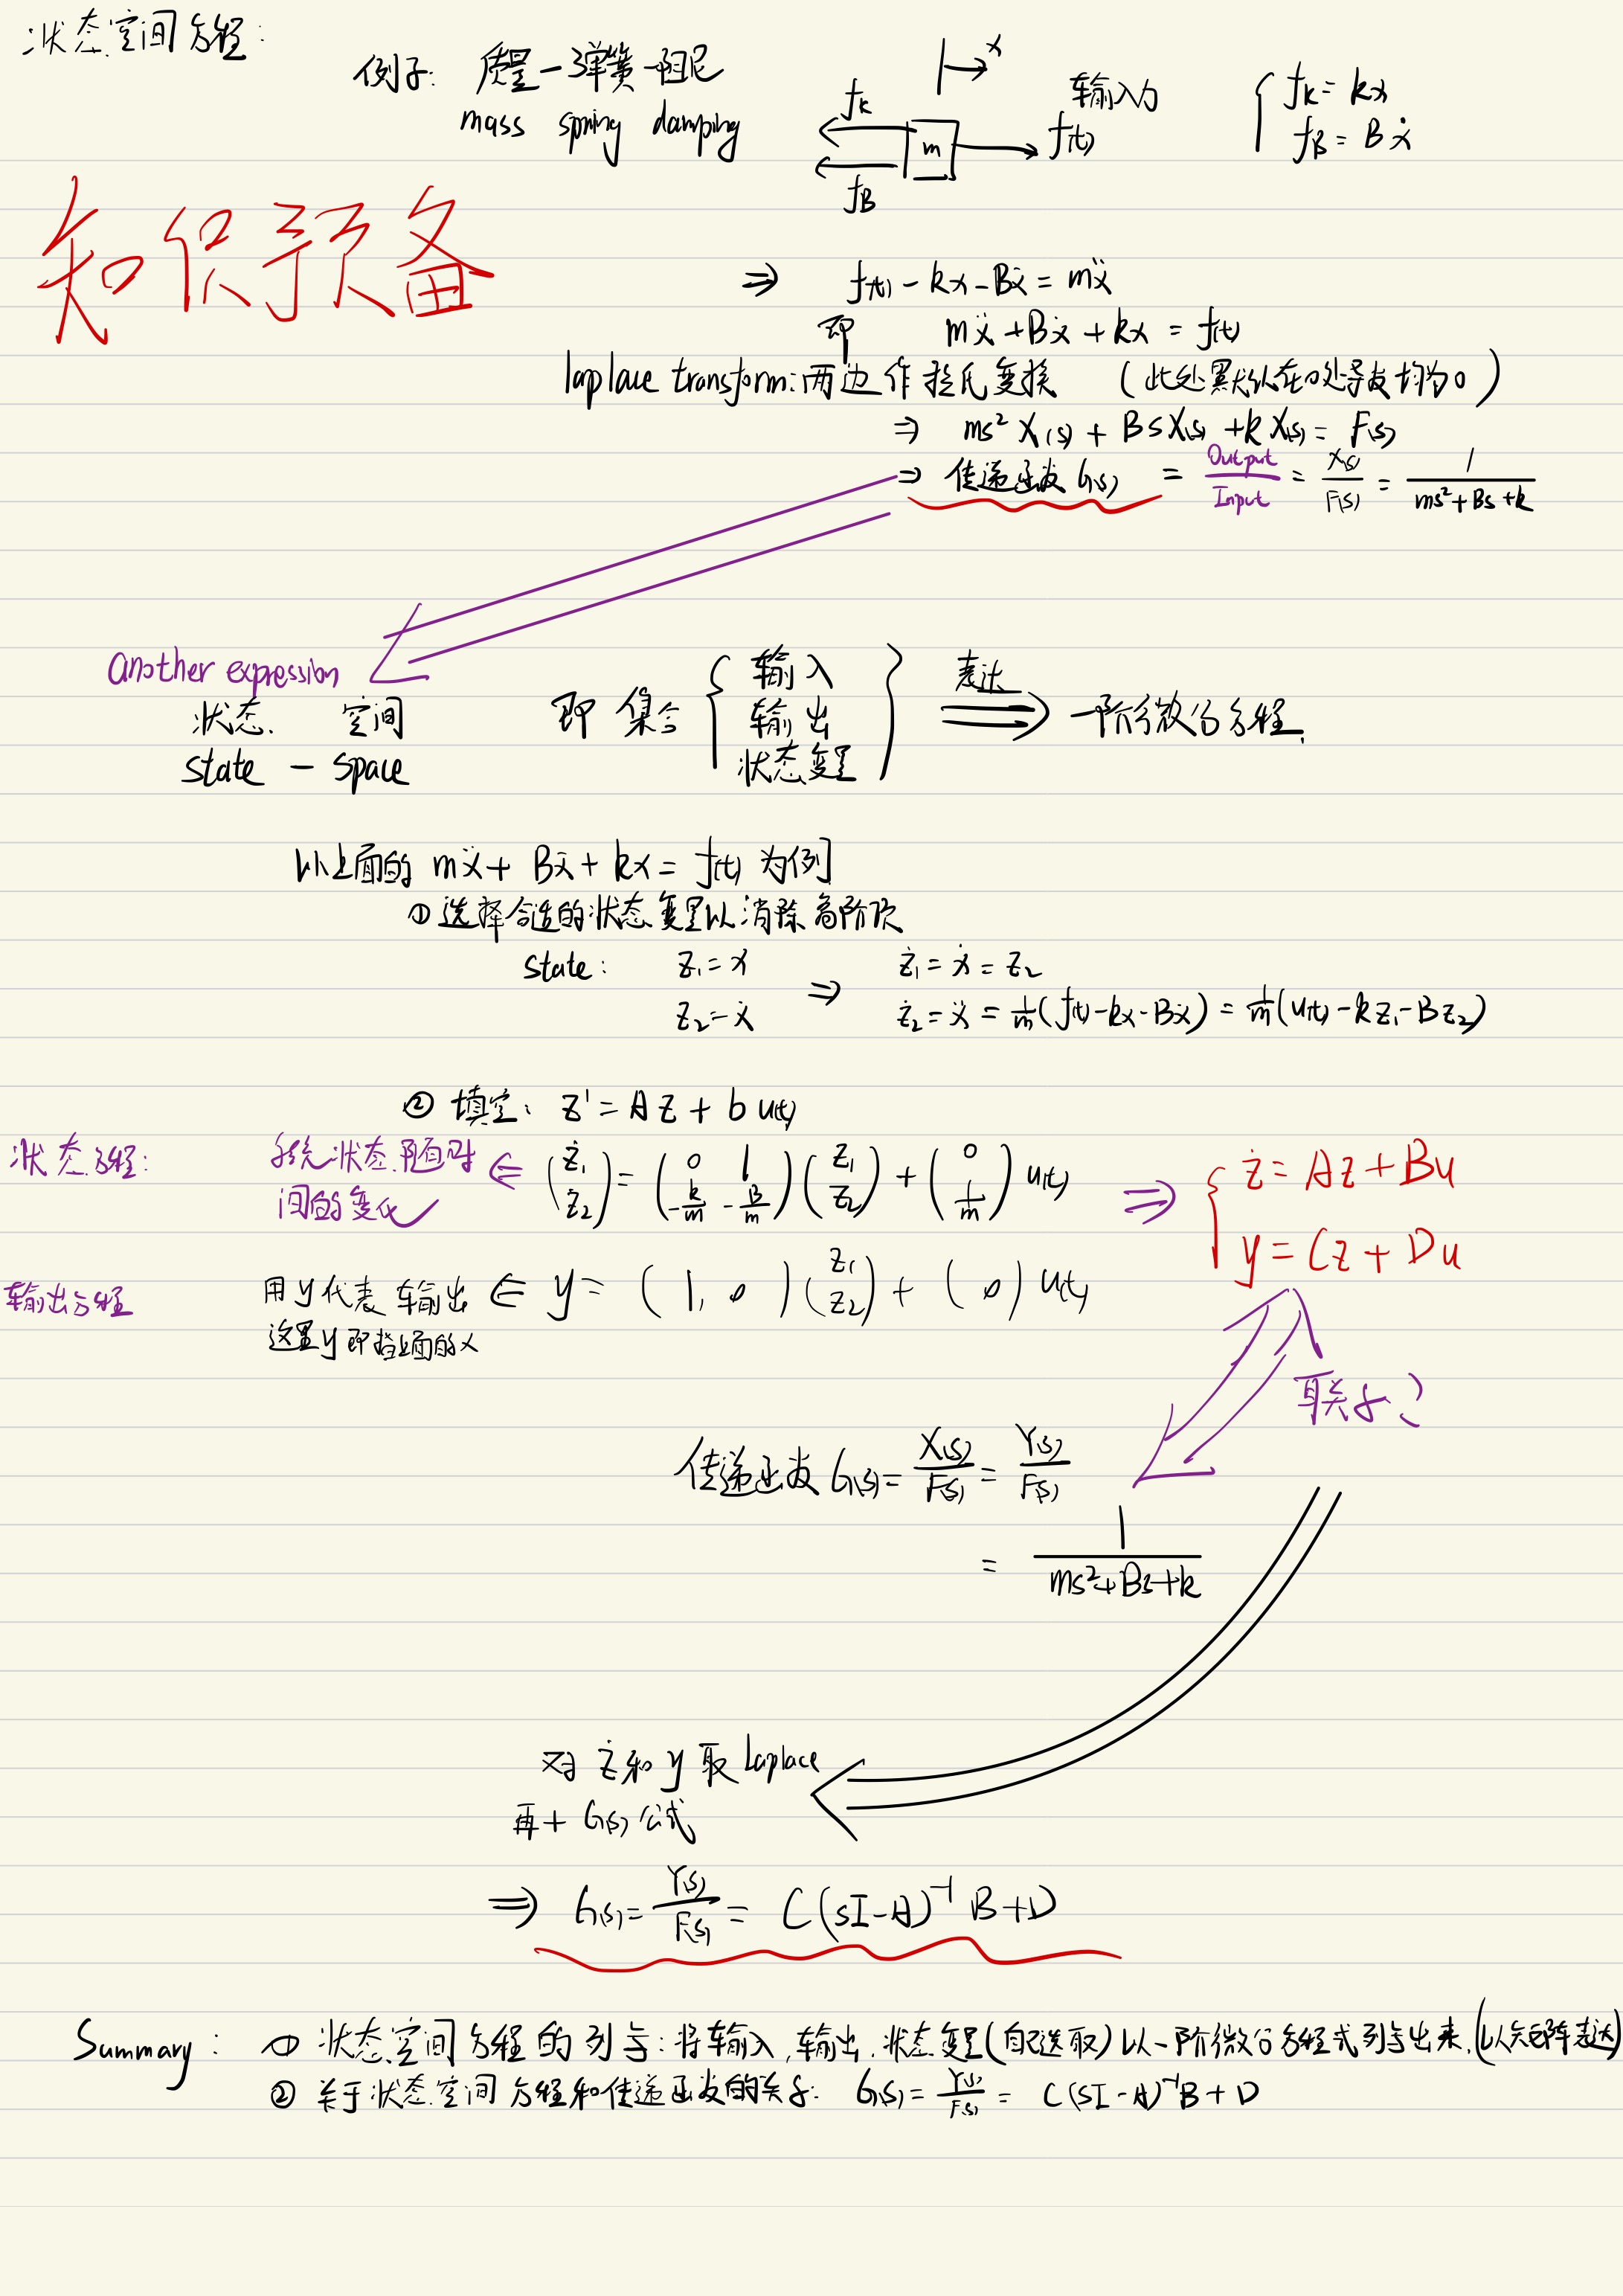 状态空间方程：
例子： 质量－弹簧－阻尼
mass spring damping
x
fk
fB
m
输入力
f(t)
{ fk = kx
fB = Bẋ
知识预备
⇒ f(t) - kx - Bẋ = mẍ
即 mẍ + Bẋ + kx = f(t)
laplace transform: 两边作拉氏变换 (此处默认在0处导数均为0)
⇒ ms² X(s) + BsX(s) + kX(s) = F(s)
⇒ 传递函数 G(s) = Output/Input = X(s)/F(s) = 1/(ms²+Bs+k)
another expression
状态 空间
state - space
即 集合 { 输入 输出 状态变量 } 表达 ⇒ 一阶微分方程.
以上面的 mẍ + Bẋ + kx = f(t) 为例
① 选择合适的状态变量以消除高阶项
state: z₁ = x ⇒ ż₁ = ẋ = z₂
z₂ = ẋ ż₂ = ẍ = 1/m (f(t) - kx - Bẋ) = 1/m (u(t) - kz₁ - Bz₂)
② 填空： z' = Az + b u(t)
状态方程： 系统状态随时间的变化 ⇐ (ż₁ ż₂) = (0 1 -k/m -B/m)(z₁ z₂) + (0 1/m) u(t) ⇒ { ż = Az + Bu
y = Cz + Du
输出方程 用y代表输出 ⇐ y = (1, 0)(z₁ z₂) + (0) u(t)
这里y即指上面的x
联系？
传递函数 G(s) = X(s)/F(s) = Y(s)/F(s)
= 1/(ms²+Bs+k)
对 ż 和 y 取 Laplace
再 + G(s) 公式
⇒ G(s) = Y(s)/F(s) = C(sI-A)⁻¹B+D
Summary: ① 状态空间方程的列写：将输入,输出,状态变量(自己选取)以一阶微分方程式列写出来.(以矩阵表达)
② 关于状态空间方程和传递函数的关系： G(s) = Y(s)/F(s) = C(sI-A)⁻¹B+D